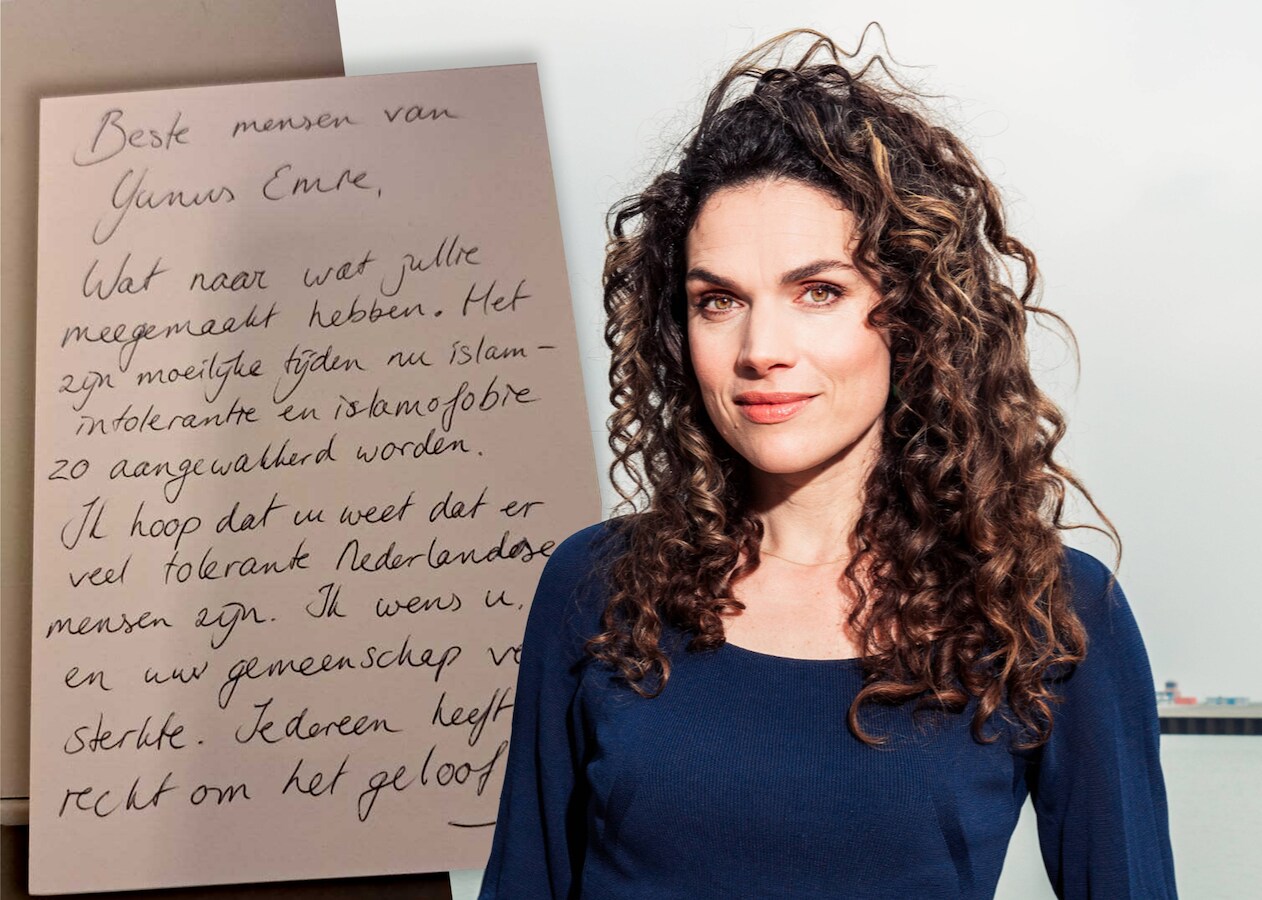 Beste mensen van
Yunus Emre,
Wat naar wat jullie
meegemaakt hebben. Het
zijn moeilijke tijden nu islam-
intolerantie en islamofobie
zo aangewakkerd worden.
Ik hoop dat u weet dat er
veel tolerante Nederlandse
mensen zijn. Ik wens u,
en uw gemeenschap
sterkte. Iedereen heeft
recht om het geloof